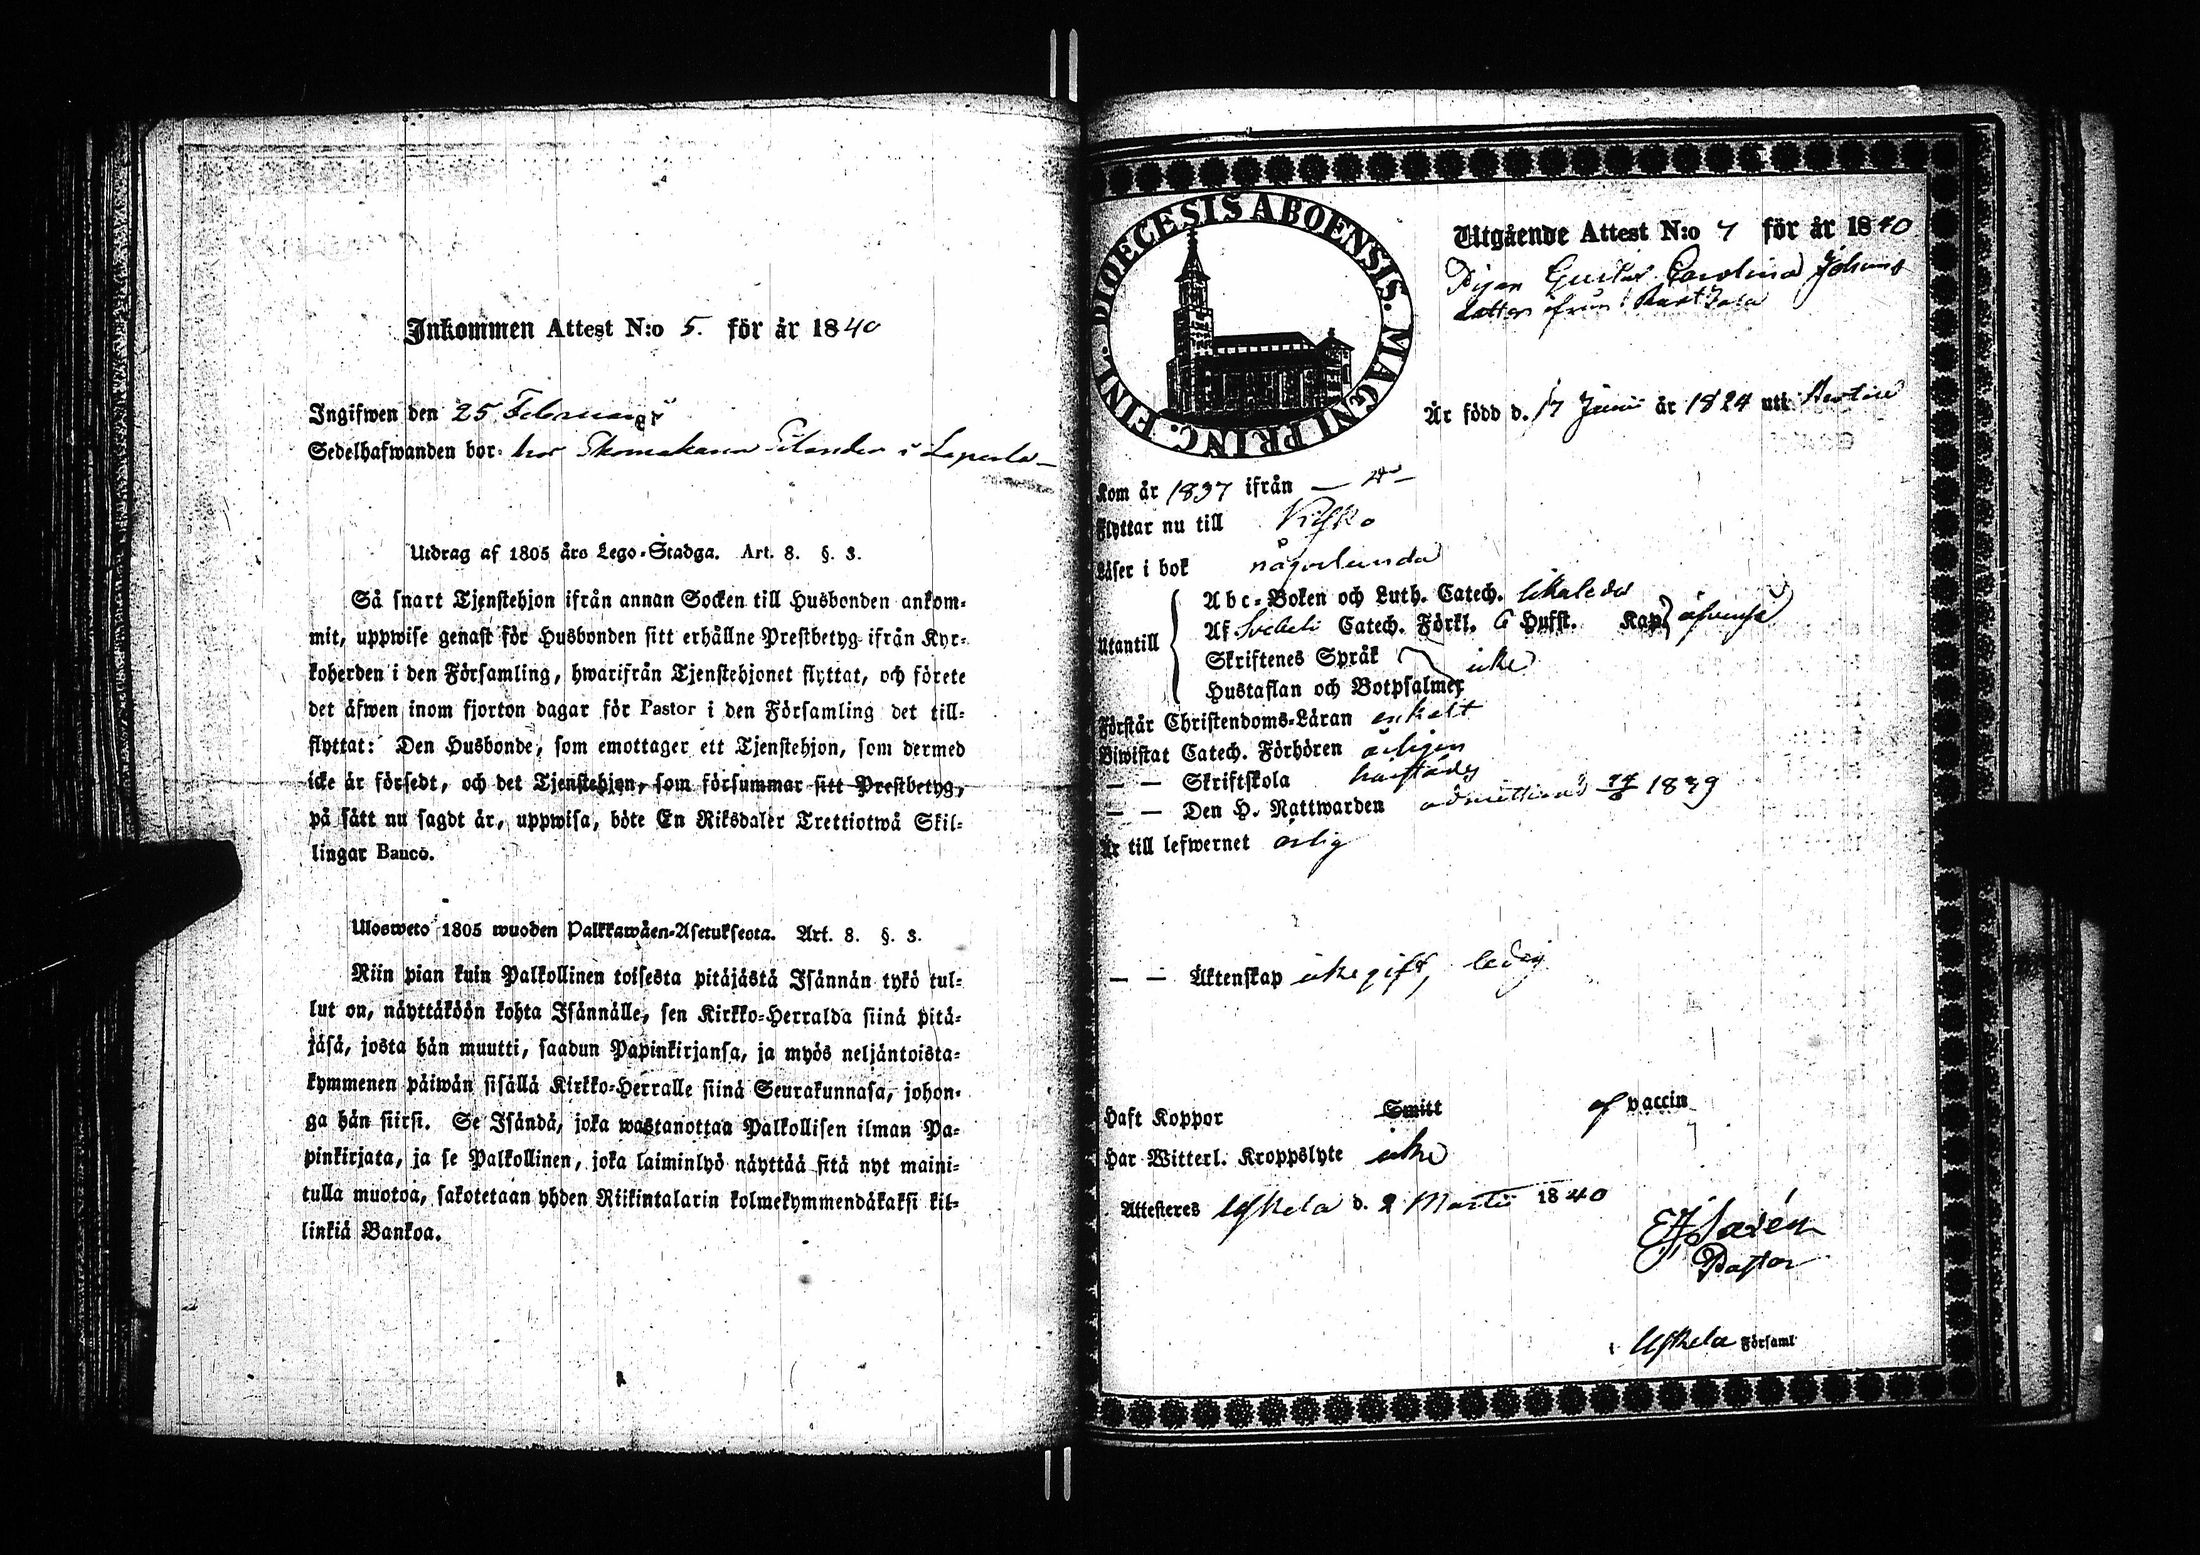 Inkommen Attest N:o 5. för år 1840
Ingifwen den 25 Februari
Sedelhafwanden bor hos Skomakaren i
Utdrag af 1805 års Lego-Stadga. Art. 8. §. 3.
Så snart Tjenstehjon ifrån annan Socken till Husbonden ankom-
mit, uppwise genast för Husbonden sitt erhållne Prestbetyg ifrån Kyr-
koherden i den Församling, hwarifrån Tjenstehjonet flyttat, och förete
det äfwen inom fjorton dagar för Pastor i den Församling det till-
flyttat: Den Husbonde, som emottager ett Tjenstehjon, som dermed
icke är försedt, och det Tjenstehjon, som försummar sitt Prestbetyg,
på sätt nu sagdt är, uppwisa, böte En Riksdaler Trettiotwå Skil-
lingar Banco.
Ulosweto 1805 wuoden Palkkawäen-Asetuksesta. Art. 8. §. 3.
Niin pian kuin Palkollinen toisesta pitäjästä Isännän tykö tul-
lut on, näyttäköön kohta Isännälle, sen Kirkko-Herralda siinä pitä-
jäsä, josta hän muutti, saadun Papinkirjansa, ja myös neljäntoista-
kymmenen päiwän sisällä Kirkko-Herralle siinä Seurakunnasa, johon-
ga hän siirsi. Se Isändä, joka wastanottaa Palkollisen ilman Pa-
pinkirjata, ja se Palkollinen, joka laiminlyö näyttää sitä nyt maini-
tulla muotoa, sakotetaan yhden Riikintalarin kolmekymmendäkaksi kil-
linkiä Bankoa.
DIOECESIS ABOENSIS. MAGNI PRINC. FINL.
Utgående Attest N:o 7 för år 1840
Pigan Gustav Carolina Johans
dotter ifrån
Är född d. 17 Junii år 1824 uti
Kom år 1837 ifrån
Flyttar nu till Kisko
Läser i bok någorlunda
Utantill
Abc-Boken och Luth. Catech. likaledes
Af Svebeli Catech. Förkl. 6 Hufst. Kap
Skriftenes Språk
Hustaflan och Botpsalmer icke
Förstår Christendoms-Läran enkelt
Biwistat Catech. Förhören årligen
— — Skriftskola
— — Den H. Nattwarden 1839
Är till lefwernet ärlig
— — Äktenskap icke gift, ledig
Haft Koppor Smitt af vaccin
Har Witterl. Kroppslyte icke
Attesteras Uskela d. 2 Martii 1840
Pastor
i Uskela Församl